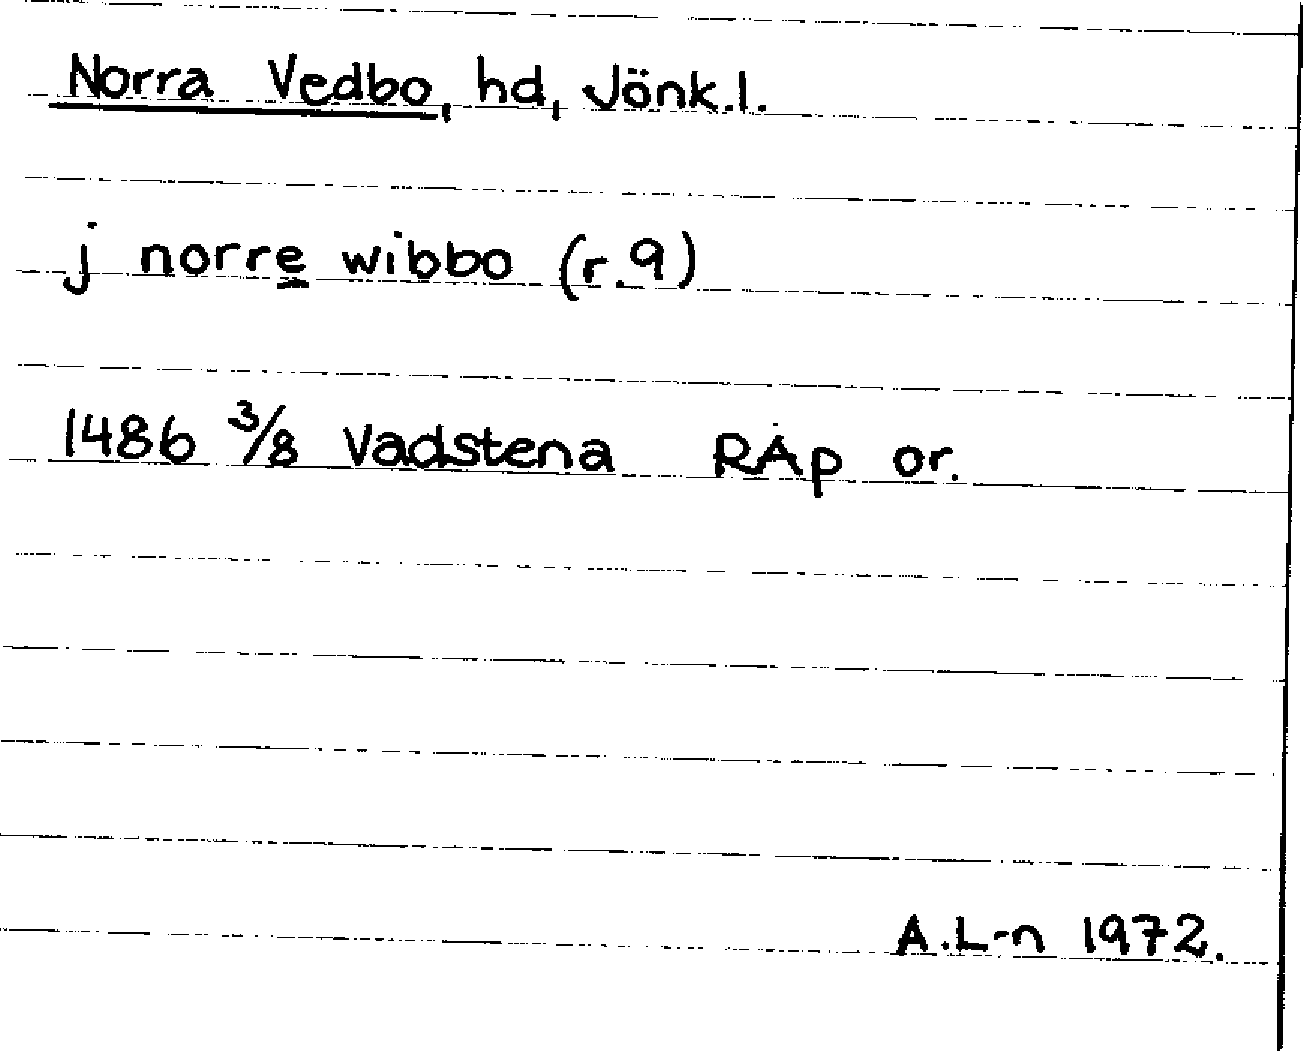 Norra Vedbo, hd, Jönk.l.
j norre wibbo (r.9)
1486 3/8 Vadstena RAp or.
A.L-n 1972.